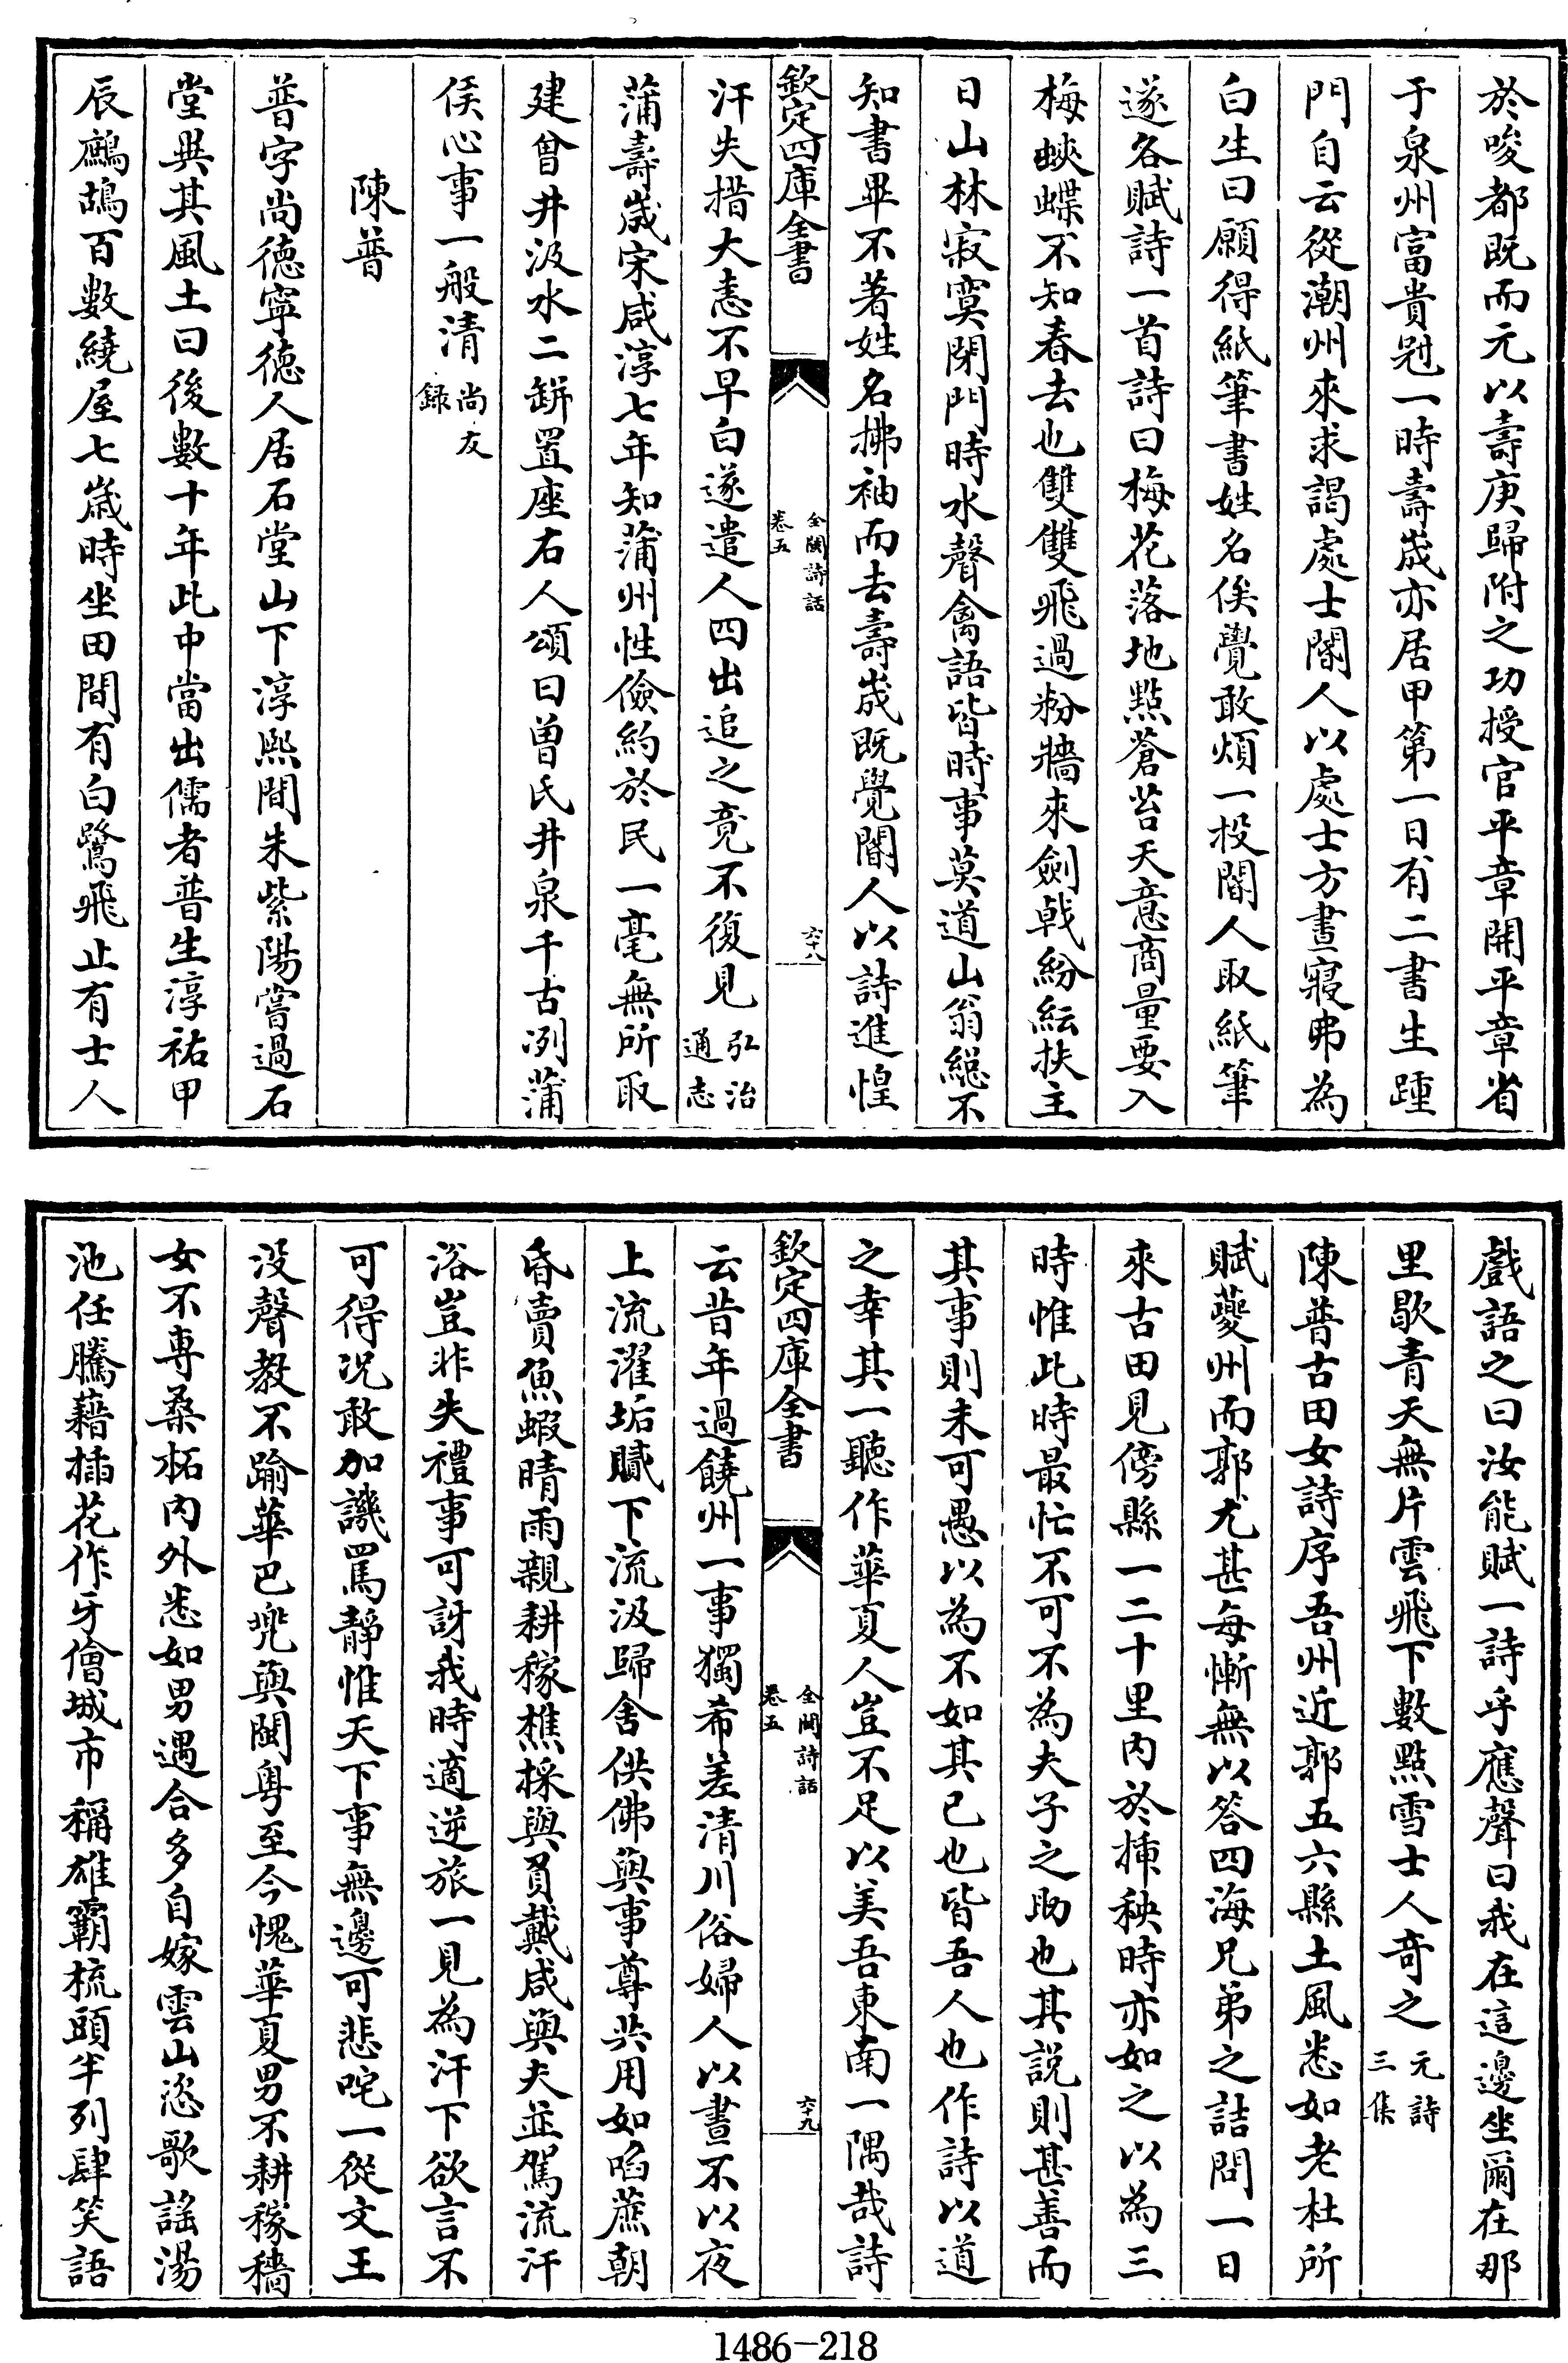 於唆都既而元以壽庚歸附之功授官平章開平章省
于泉州富貴冠一時壽宬亦居甲第一日有二書生踵
門自云從潮州來求謁處士閽人以處士方晝寢弗為
白生曰願得紙筆書姓名俟覺敢煩一投閽人取紙筆
遂各賦詩一首詩曰梅花落地點蒼苔天意商量要入
梅蛺蝶不知春去也雙雙飛過粉牆來劍戟紛紜扶主
日山林寂寞閉門時水聲禽語皆時事莫道山翁緫不
知書畢不著姓名拂袖而去壽宬既覺閽人以詩進惶
欽定四庫全書
全閩詩話
卷五
六十八
汗失措大恚不早白遂遣人四出追之竟不復見弘治
通志
蒲壽宬宋咸淳七年知蒲州性儉約於民一毫無所取
建曾井汲水二缾置座右人頌曰曾氏井泉千古冽蒲
侯心事一般清尚友
録
陳普
普字尚德寧德人居石堂山下淳熙間朱紫陽嘗過石
堂異其風土曰後數十年此中當出儒者普生淳祐甲
辰鷓鴣百數繞屋七歲時坐田間有白鷺飛止有士人
戲語之曰汝能賦一詩乎應聲曰我在這邊坐爾在那
里歇青天無片雲飛下數點雪士人奇之元詩
三集
陳普古田女詩序吾州近郭五六縣土風悉如老杜所
賦夔州而郭尤甚每慚無以答四海兄弟之詰問一日
來古田見傍縣一二十里内於挿秧時亦如之以為三
時惟此時最忙不可不為夫子之助也其説則甚善而
其事則未可愚以為不如其已也皆吾人也作詩以道
之幸其一聽作華夏人豈不足以美吾東南一隅哉詩
欽定四庫全書
全閩詩話
卷五
六十九
云昔年過饒州一事獨希差清川俗婦人以晝不以夜
上流濯垢膩下流汲歸舍供佛與事尊共用如啗蔗朝
昏賣魚蝦晴雨親耕稼樵採與負戴咸與夫並駕流汗
浴豈非失禮事可訝我時適逆旅一見為汗下欲言不
可得况敢加譏罵靜惟天下事無邊可悲咤一從文王
没聲教不踰華巴兜與閩粤至今愧華夏男不耕稼穡
女不專桑柘内外悉如男遇合多自嫁雲山恣歌謡湯
池任騰藉插花作牙儈城市稱雄霸梳頭半列肆笑語
1486-218